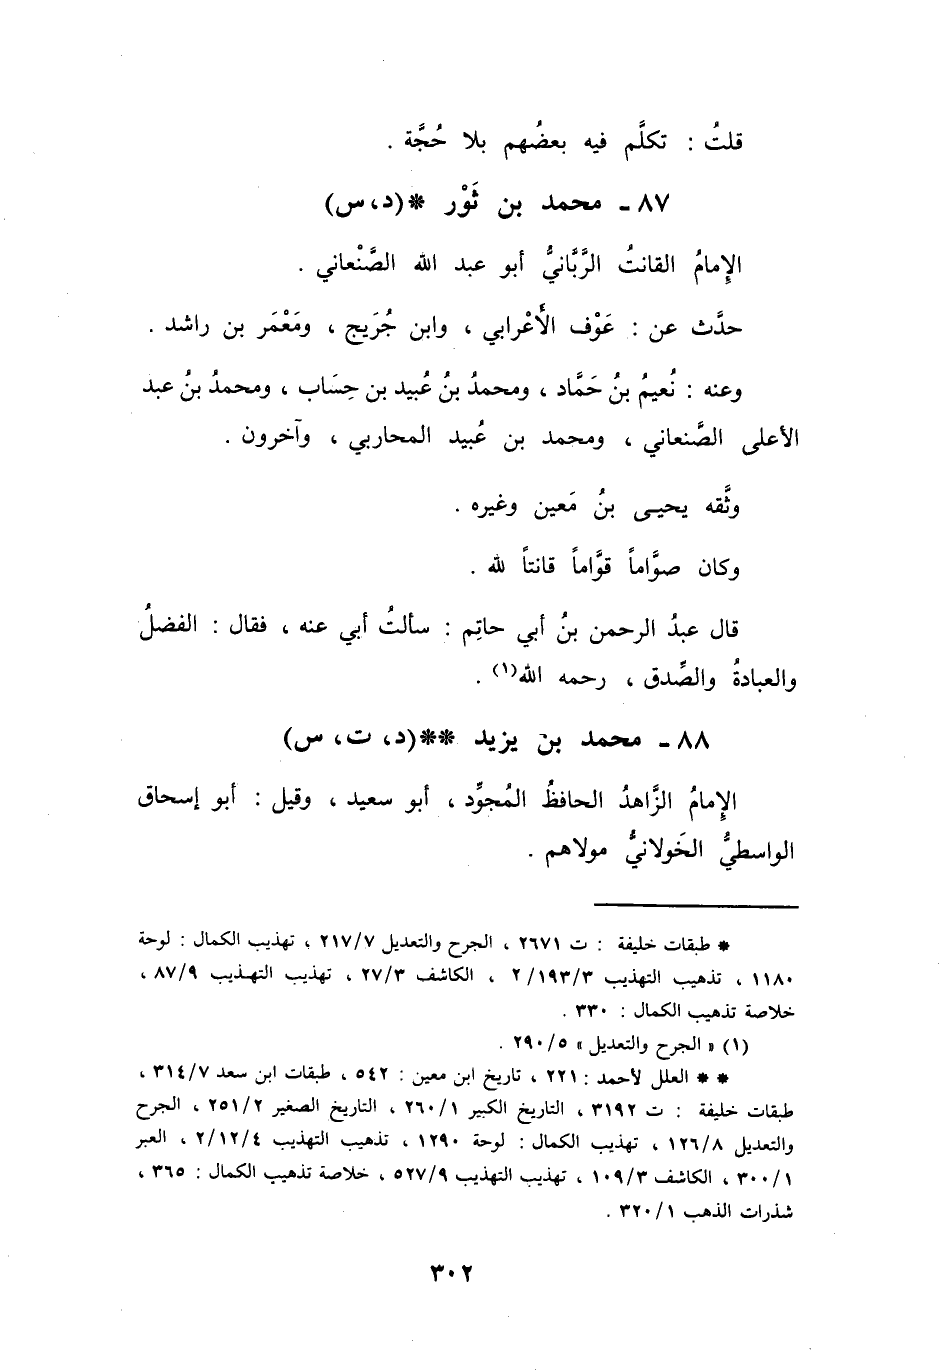 قلتُ : تكلَّم فيه بعضُهم بلا حُجَّة .
٨٧ ـ محمد بن ثَوْر *(د، س)
الإِمامُ القانتُ الرَّبَّانيُّ أبو عبد الله الصَّنْعاني .
حدَّث عن : عَوْف الأَعْرابي ، وابن جُرَيج ، ومَعْمَر بن راشد .
وعنه : نُعيمُ بنُ حَمَّاد ، ومحمدُ بنُ عُبيد بن حِسَاب ، ومحمدُ بنُ عبد
الأعلى الصَّنعاني ، ومحمد بن عُبيد المحاربي ، وآخرون .
وثَّقه يحيـى بنُ مَعين وغيره .
وكان صوَّاماً قوَّاماً قانتاً لله .
قال عبدُ الرحمن بنُ أبي حاتِم : سألتُ أبي عنه ، فقال : الفضلُ
والعبادةُ والصِّدق ، رحمه الله(١) .
٨٨ ـ محمد بن يزيد **(د، ت، س)
الإِمامُ الزَّاهدُ الحافظُ المُجوِّد ، أبو سعيد ، وقيل : أبو إسحاق
الواسطيُّ الخَولانيُّ مولاهم .
* طبقات خليفة : ت ٢٦٧١ ، الجرح والتعديل ٢١٧/٧ ، تهذيب الكمال : لوحة
١١٨٠ ، تذهيب التهذيب ٢/١٩٣/٣ ، الكاشف ٢٧/٣ ، تهذيب التهـذيب ٨٧/٩ ،
خلاصة تذهيب الكمال : ٣٣٠ .
(١) « الجرح والتعديل » ٢٩٠/٥ .
* * العلل لأحمد : ٢٢١ ، تاريخ ابن معين : ٥٤٢ ، طبقات ابن سعد ٣١٤/٧ ،
طبقات خليفة : ت ٣١٩٢ ، التاريخ الكبير ٢٦٠/١ ، التاريخ الصغير ٢٥١/٢ ، الجرح
والتعديل ١٢٦/٨ ، تهذيب الكمال : لوحة ١٢٩٠ ، تذهيب التهذيب ٢/١٢/٤ ، العبر
٣٠٠/١ ، الكاشف ١٠٩/٣ ، تهذيب التهذيب ٥٢٧/٩ ، خلاصة تذهيب الكمال : ٣٦٥ ،
شذرات الذهب ٣٢٠/١ .
٣٠٢